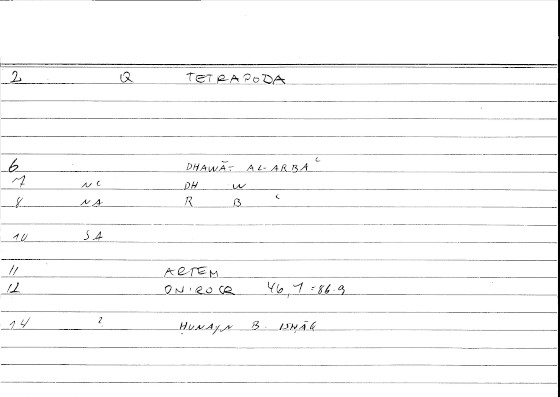 2 Q TETRAPODA
6 DHAWĀT AL-ARBAʿ
7 NC DH W
8 NA R B ʿ
10 SA
11 ARTEM
12 ONIROCR 46,7=86.9
14 2 ḤUNAYN B. ISḤĀQ